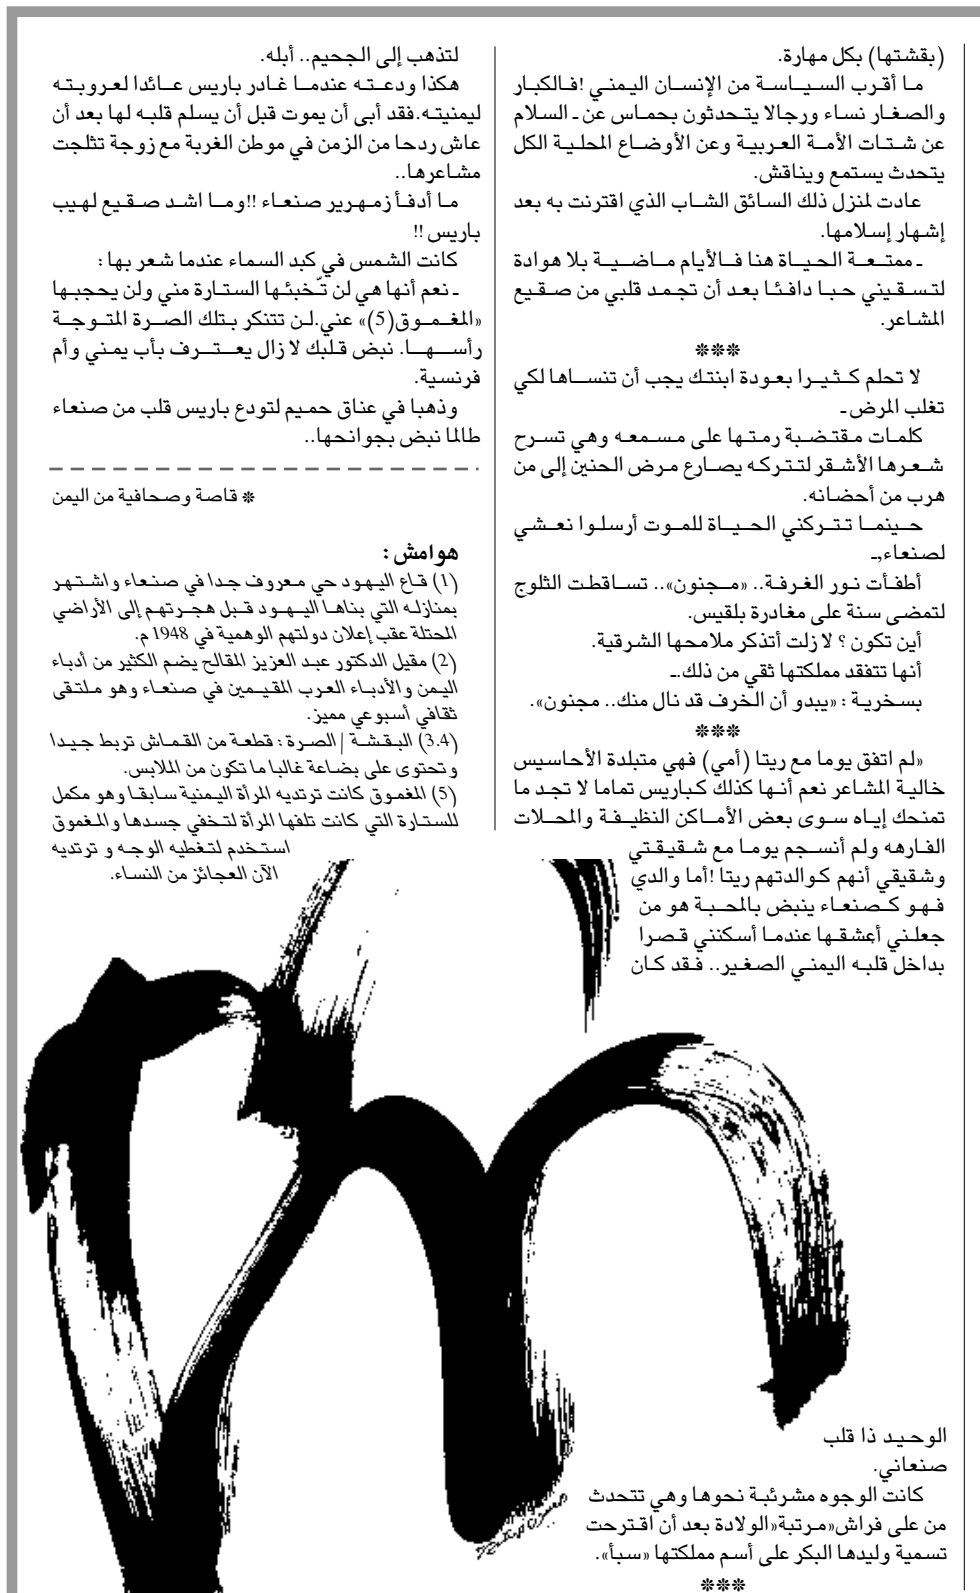 (بقشتها) بكل مهارة.
ما أقرب السياسة من الإنسان اليمني !فالكبار
والصغار نساء ورجالا يتحدثون بحماس عن ـ السلام
عن شتات الأمة العربية وعن الأوضاع المحلية الكل
يتحدث يستمع ويناقش.
عادت لمنزل ذلك السائق الشاب الذي اقترنت به بعد
إشهار إسلامها.
ـ ممتعة الحياة هنا فالأيام ماضية بلا هوادة
لتسقيني حبا دافئا بعد أن تجمد قلبي من صقيع
المشاعر.
***
لا تحلم كثيرا بعودة ابنتك يجب أن تنساها لكي
تغلب المرض ـ
كلمات مقتضبة رمتها على مسمعه وهي تسرح
شعرها الأشقر لتتركه يصارع مرض الحنين إلى من
هرب من أحضانه.
حينما تتركني الحياة للموت أرسلوا نعشي
لصنعاء,ـ
أطفأت نور الغرفة.. «مجنون».. تساقطت الثلوج
لتمضى سنة على مغادرة بلقيس.
أين تكون ؟ لا زلت أتذكر ملامحها الشرقية.
أنها تتفقد مملكتها ثقي من ذلك.ـ
بسخرية : «يبدو أن الخرف قد نال منك.. مجنون».
***
«لم اتفق يوما مع ريتا (أمي) فهي متبلدة الأحاسيس
خالية المشاعر نعم أنها كذلك كباريس تماما لا تجد ما
تمنحك إياه سوى بعض الأماكن النظيفة والمحلات
الفارهه ولم أنسجم يوما مع شقيقتي
وشقيقي أنهم كوالدتهم ريتا !أما والدي
فهو كصنعاء ينبض بالمحبة هو من
جعلني أعشقها عندما أسكنني قصرا
بداخل قلبه اليمني الصغير.. فقد كان
الوحيد ذا قلب
صنعاني.
كانت الوجوه مشرئبة نحوها وهي تتحدث
من على فراش«مرتبة«الولادة بعد أن اقترحت
تسمية وليدها البكر على أسم مملكتها «سبأ».
***
لتذهب إلى الجحيم.. أبله.
هكذا ودعته عندما غادر باريس عائدا لعروبته
ليمنيته.فقد أبى أن يموت قبل أن يسلم قلبه لها بعد أن
عاش ردحا من الزمن في موطن الغربة مع زوجة تثلجت
مشاعرها..
ما أدفأ زمهرير صنعاء !!وما اشد صقيع لهيب
باريس !!
كانت الشمس في كبد السماء عندما شعر بها :
ـ نعم أنها هي لن تّخبئها الستارة مني ولن يحجبها
«المغموق(5)» عني.لن تتنكر بتلك الصرة المتوجة
رأسها. نبض قلبك لا زال يعترف بأب يمني وأم
فرنسية.
وذهبا في عناق حميم لتودع باريس قلب من صنعاء
طالما نبض بجوانحها..
* قاصة وصحافية من اليمن
هوامش :
(1) قاع اليهود حي معروف جدا في صنعاء واشتهر
بمنازله التي بناها اليهود قبل هجرتهم إلى الأراضي
المحتلة عقب إعلان دولتهم الوهمية في 1948م.
(2) مقيل الدكتور عبد العزيز المقالح يضم الكثير من أدباء
اليمن والأدباء العرب المقيمين في صنعاء وهو ملتقى
ثقافي أسبوعي مميز.
(3.4) البقشة | الصرة : قطعة من القماش تربط جيدا
وتحتوى على بضاعة غالبا ما تكون من الملابس.
(5) المغموق كانت ترتديه المرأة اليمنية سابقا وهو مكمل
للستارة التي كانت تلفها المرأة لتخفي جسدها والمغموق
استخدم لتغطيه الوجه و ترتديه
الآن العجائز من النساء.